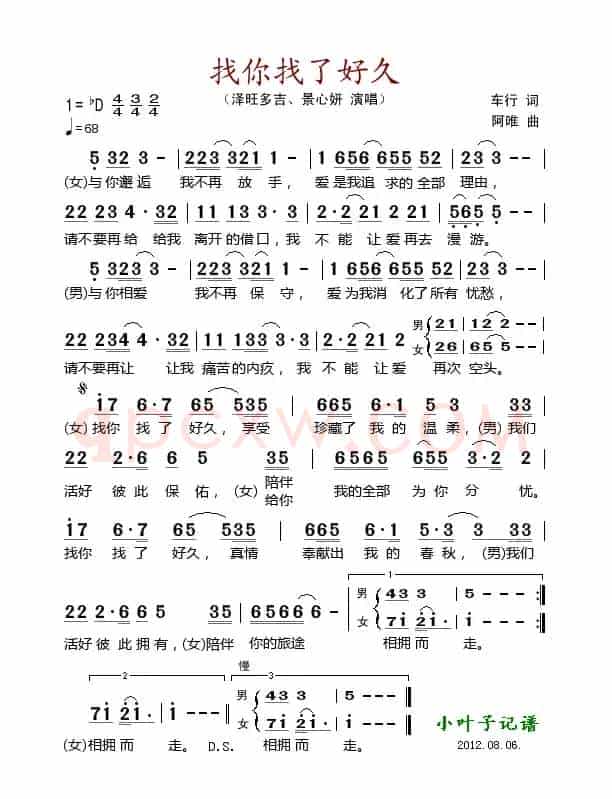 找你找了好久
（泽旺多吉、景心妍 演唱）
1=♭D 4/4 3/4 2/4
♩=68
车行 词
阿唯 曲
5 32 3 - | 223 321 1 - | 1 656 655 52 | 23 3 - - |
(女)与你邂逅 我不再 放手， 爱是我追 求的全部 理由，
22 234·32 | 11 133 3·3 | 2·2 21 2 21 | 565 5 - - |
请不要再给 给我 离开的借口，我 不能 让爱再去 漫游。
5 323 3 - | 223 321 1 - | 1 656 655 52 | 23 3 - - |
(男)与你相爱 我不再 保守， 爱为我消 化了所有 忧愁，
22 234 4·32 | 11 133 3·3 | 2·2 21 2 男 21 | 122 - |
女
请不要再让 让我 痛苦的内疚，我 不能 让爱 再次 空头。
17 6·7 65 535 | 665 6·1 5·3 33 |
(女)找你 找了 好久，享受 珍藏了 我的 温柔，(男)我们
22 2·6 6 5 35 | 6565 655 5 - |
活好 彼此 保佑，(女)陪伴 我的全部 为你 分 忧。
给你
17 6·7 65 535 | 665 6·1 5·3 33 |
找你 找了 好久，真情 奉献出 我的 春秋，(男)我们
1
22 2·6 65 35 | 6565 6 6 - | 男 43 3 | 5 - - - :||
女 71 21· | 1 - - - :||
活好 彼此拥有，(女)陪伴 你的旅途 相拥而 走。
2 慢 3
71 21· | 1 - - - :|| 男 43 3 | 5 - - - ||
女 71 21· | 1 - - - ||
(女)相拥而 走。 D.S. 相拥而 走。
小叶子记谱
2012.08.06.
qpcxw.COM